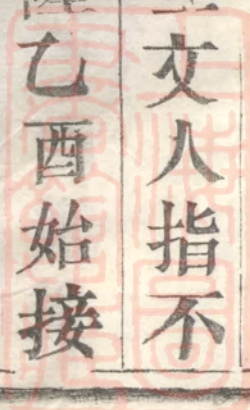 文人指不
乙酉始接